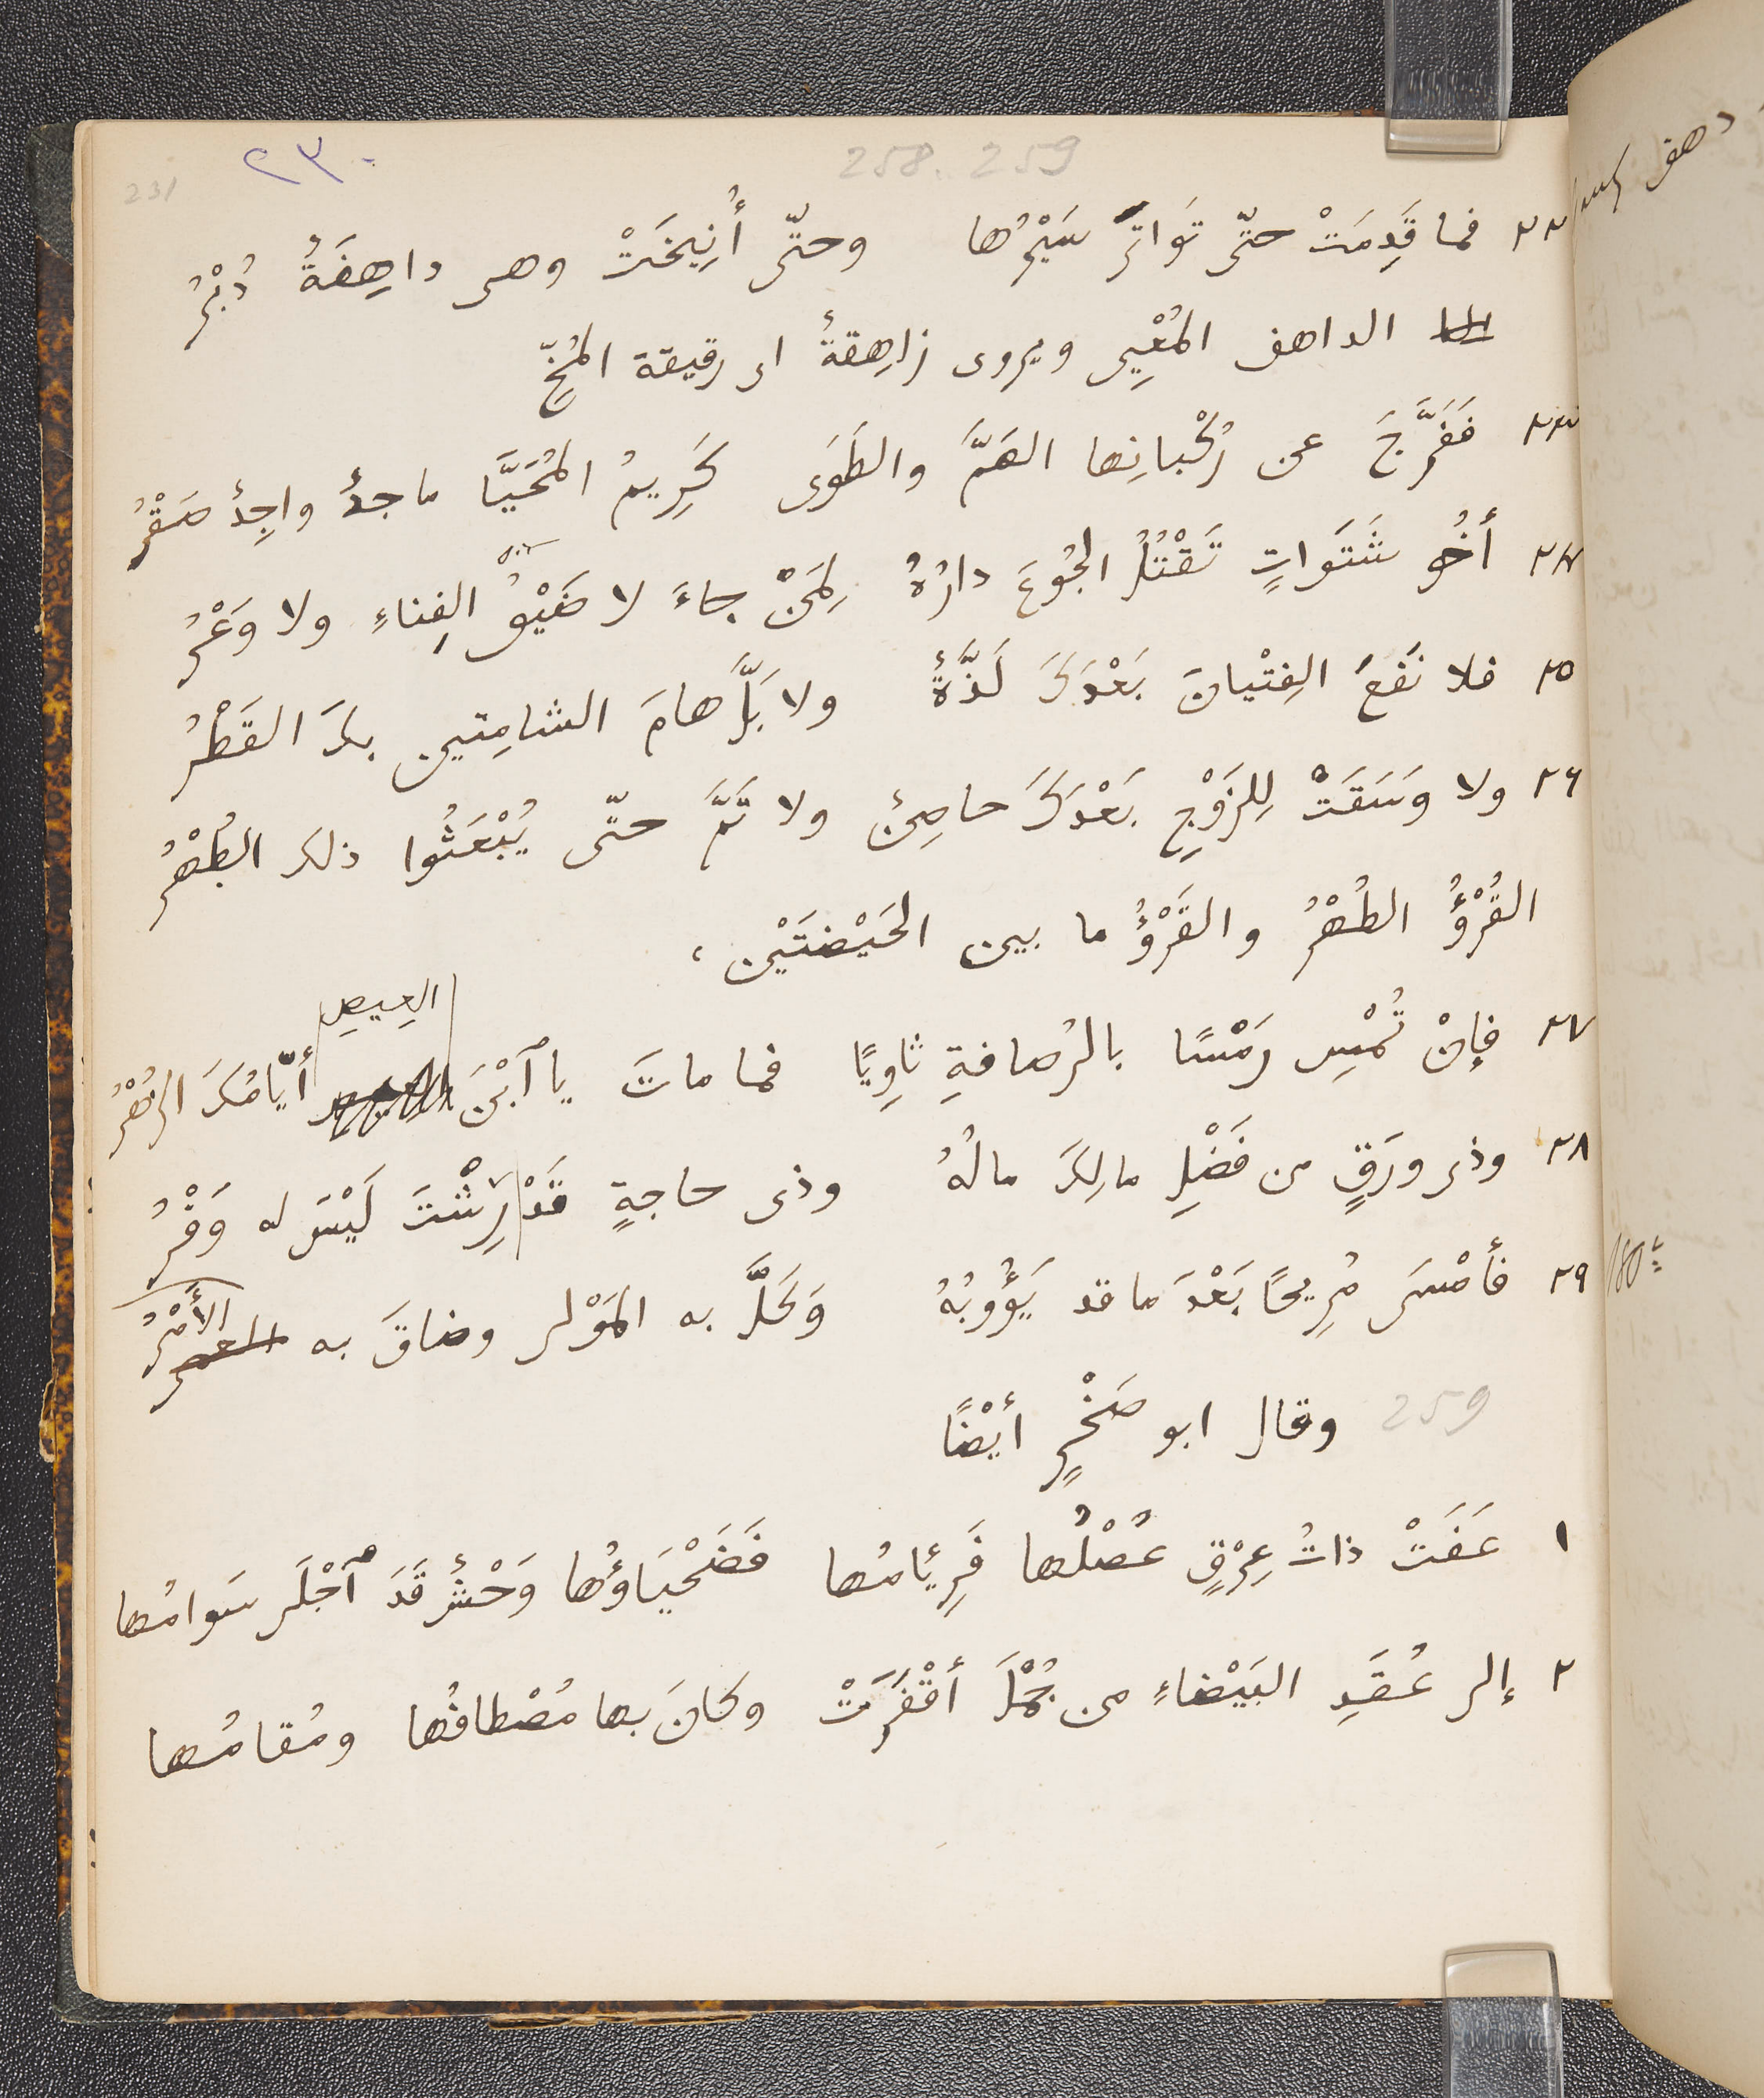 258. 259
٢٣٠
231
٢٢ فما قَدِمَتْ حتّى تَواتَرَ سَيْرُها وحتّى أُنِيخَتْ وهى داهِفَةٌ دُبْرُ
الداهف المُعْيِى ويروى زاهِقةٌ اى رقيقة المُخِّ
٢٣ فَفَرَّجَ عن رُكْبانِها الهَمَّ والطَوَى كَرِيمُ المُحَيَّا ماجدٌ واجِدٌ صَقْرُ
٢٤ أخُو شَتَواتٍ تَقْتُلُ الجُوعَ دارُهُ لِمَنْ جاءَ لا ضَيْقُ الفِناءِ ولا وَعْرُ
٢٥ فلا نَفَعَ الفِتْيانَ بَعْدَكَ لَذَّةٌ ولا بَلَّ هامَ الشامِتين بكَ القَطْرُ
٢٦ ولا وَسَقَتْ لِلزَوْجِ بَعْدَكَ حاصِنٌ ولا تَمَّ حتّى يُبْعَثُوا ذلك الطُهْرُ
القُرْؤُ الطُهْرُ والقَرْؤُ ما بين الحَيْضَتَيْن،
العِيصِ
٢٧ فإنْ تُمْسِ رَمْسًا بالرُصافةِ ثاوِيًا فما ماتَ يا ٱبْنَ أيّامُكَ الزُهْرُ
٢٨ وذى ورَقٍ من فَضْلِ مالِكَ مالُهُ وذى حاجةٍ قَدْ رِشْتَ لَيْسَ له وَفْرُ
٢٩ فأمْسَى مُرِيحًا بَعْدَ ما قد يَؤُوبُهُ وَكَلَّ به المَوْلى وضاقَ به الأَمْرُ
259 وقال ابو صَخْرٍ أيْضًا
١ عَفَتْ ذاتُ عِرْقٍ عُصْلُها فَرِئامُها فَضَحْيَاؤُها وَحْشٌ قَدَ ٱجْلَى سَوامُها
٢ إلى عُقَدِ البَيْضاءِ من جُمْلَ أقْفَرَتْ وكانَ بها مُصْطافُها ومُقامُها